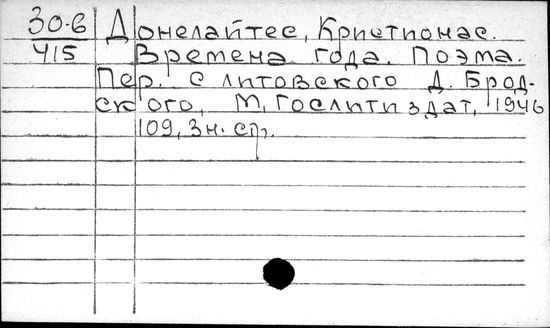 30-6 Донелайтес, Кристионас.
415 Времена года. Поэма.
Пер. с литовского Д. Брод-
ского, М, Гослитиздат, 1946
109, 3 н. стр.